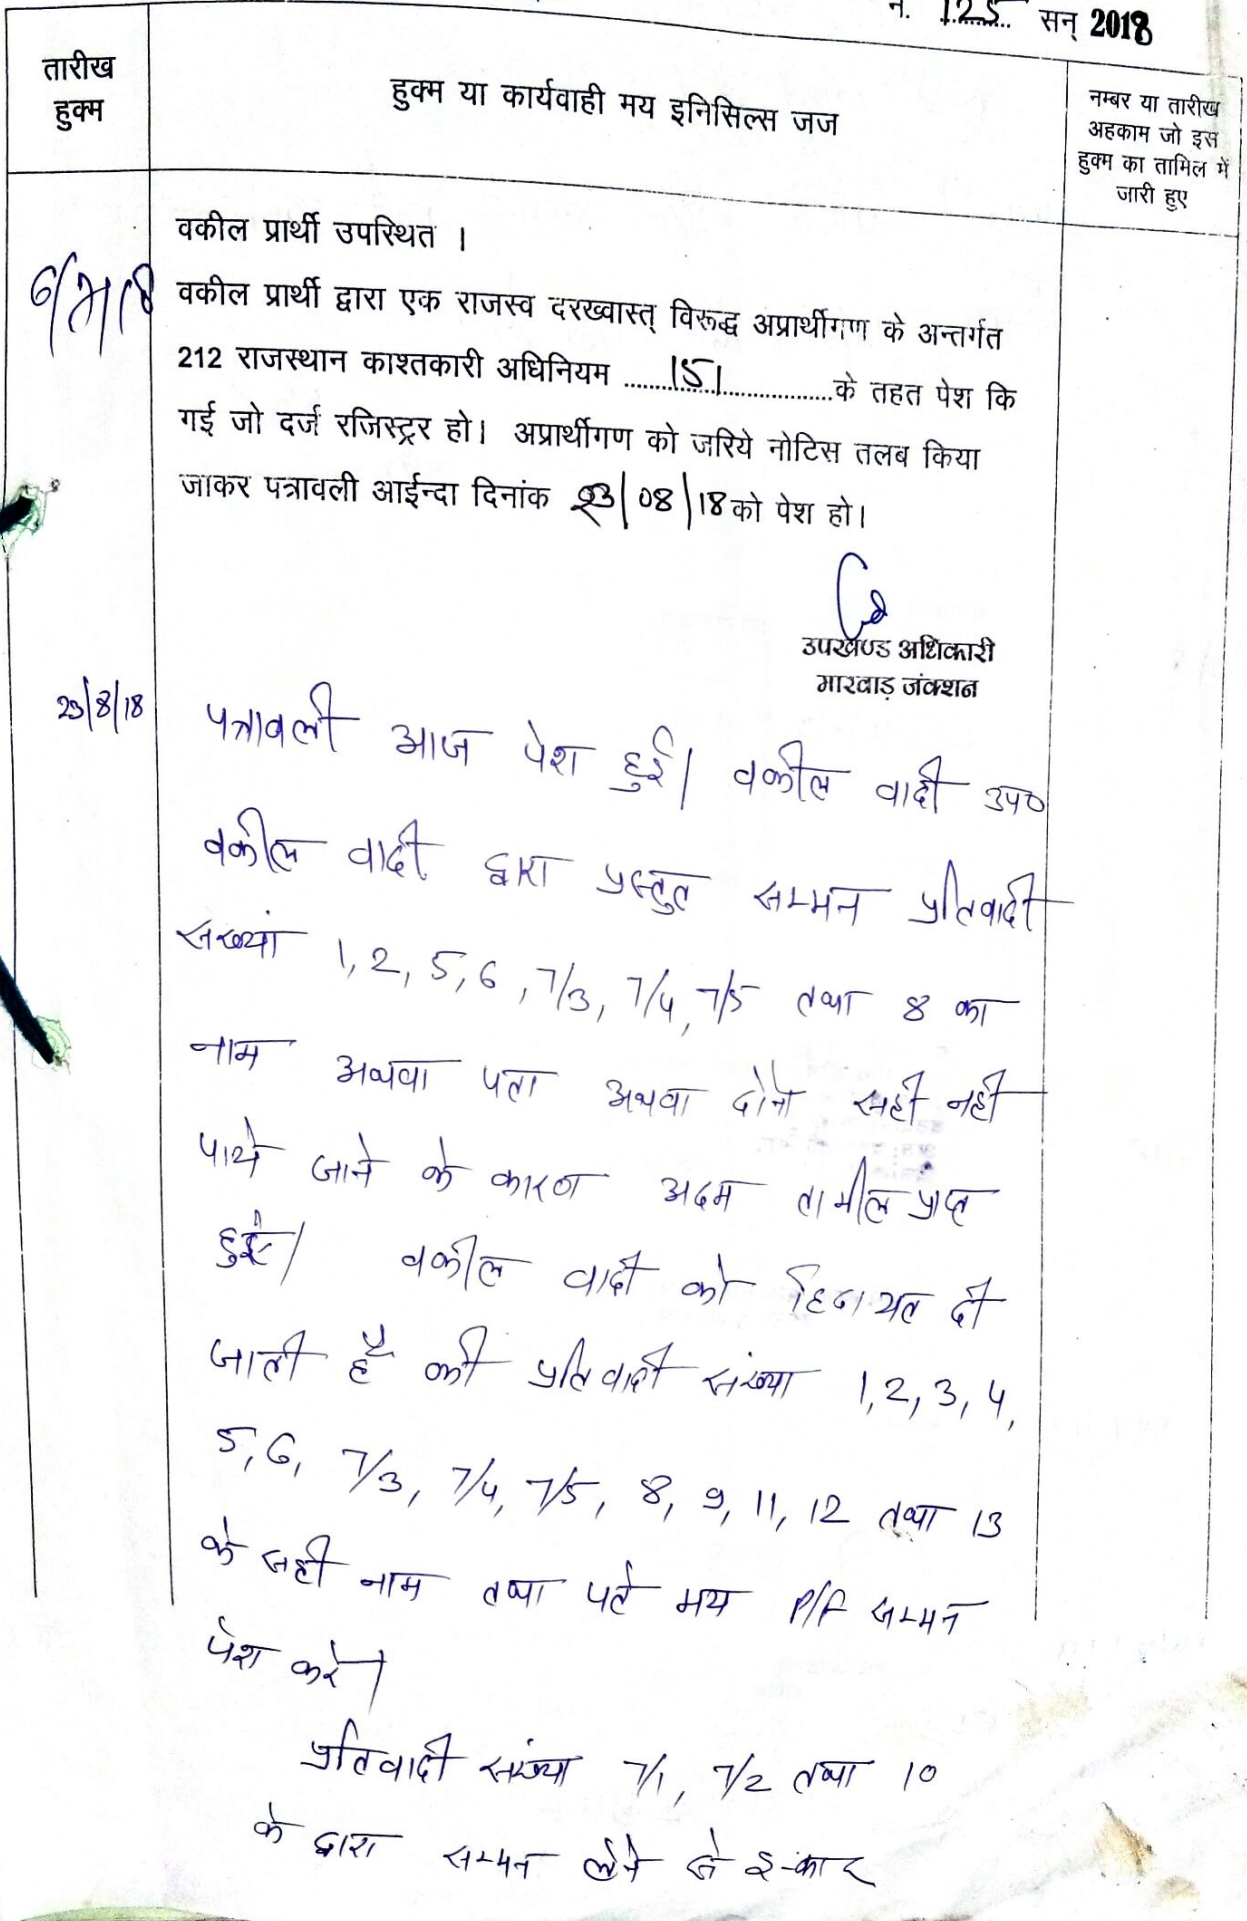 न. 125 सन् 2018
तारीख
हुक्म
हुक्म या कार्यवाही मय इनिसिल्स जज
नम्बर या तारीख
अहकाम जो इस
हुक्म का तामिल में
जारी हुए
वकील प्रार्थी उपस्थित ।
वकील प्रार्थी द्वारा एक राजस्व दरख्वास्त् विरूद्ध अप्रार्थीगण के अन्तर्गत
212 राजस्थान काश्तकारी अधिनियम ....151....के तहत पेश कि
गई जो दर्ज रजिस्ट्रर हो। अप्रार्थीगण को जरिये नोटिस तलब किया
जाकर पत्रावली आईन्दा दिनांक 23/08/18 को पेश हो।
उपखण्ड अधिकारी
मारवाड़ जंक्शन
23/8/18
पत्रावली आज पेश हुई। वकील वादी उप०
वकील वादी द्वारा प्रस्तुत सम्मन प्रतिवादी
संख्यां 1, 2, 5, 6, 7/3, 7/4, 7/5 तथा 8 का
नाम अथवा पता अथवा दोनो सही नही
पाये जाने के कारण अदम तामील प्राप्त
हुई। वकील वादी को हिदायत दी
जाती है की प्रतिवादी संख्या 1, 2, 3, 4,
5, 6, 7/3, 7/4, 7/5, 8, 9, 11, 12 तथा 13
के सही नाम तथा पते मय P/F सम्मन
पेश करे।
प्रतिवादी संख्या 7/1, 7/2 तथा 10
के द्वारा सम्मन लेने से इन्कार